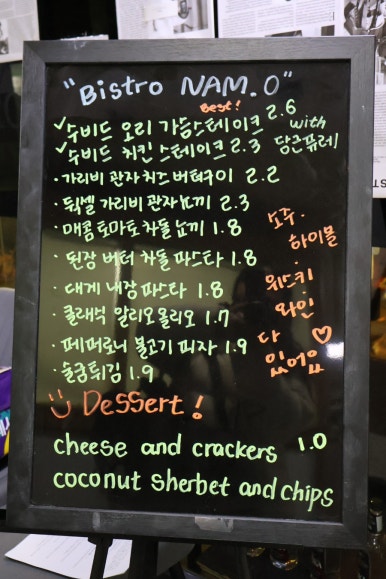 "Bistro NAM.O"
Best!
✓수비드 오리 가슴스테이크 2.6
✓수비드 치킨 스테이크 2.3
with
당근퓨레
· 가리비 관자 치즈 버터구이 2.2
· 뒥셀 가리비 관자 뇨끼 2.3
· 매콤 토마토 차돌 뇨끼 1.8
· 된장 버터 차돌 파스타 1.8
· 대게 내장 파스타 1.8
· 클래식 알리오올리오 1.7
· 페퍼로니 불고기 피자 1.9
· 술굼튀김 1.9
소주.
하이볼
·
위스키
·
와인
다 ♡
있어요
Dessert!
cheese and crackers 1.0
coconut sherbet and chips